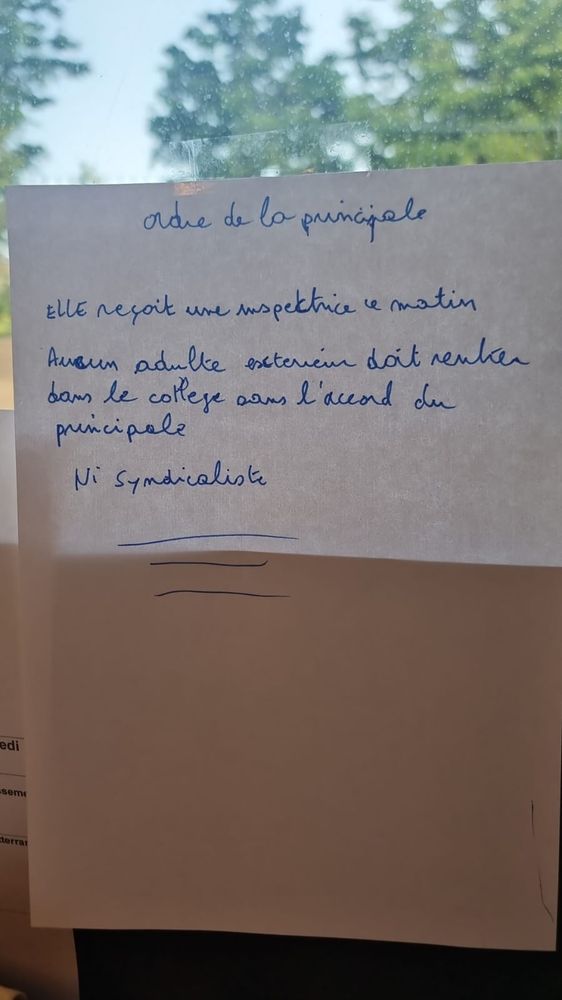 ordre de la principale
ELLE reçoit une inspektrice ce matin
Aucun adulte exterieur doit rentrer
dans le college sans l'accord du
principale
Ni Syndicaliste
edi
sseme
terra